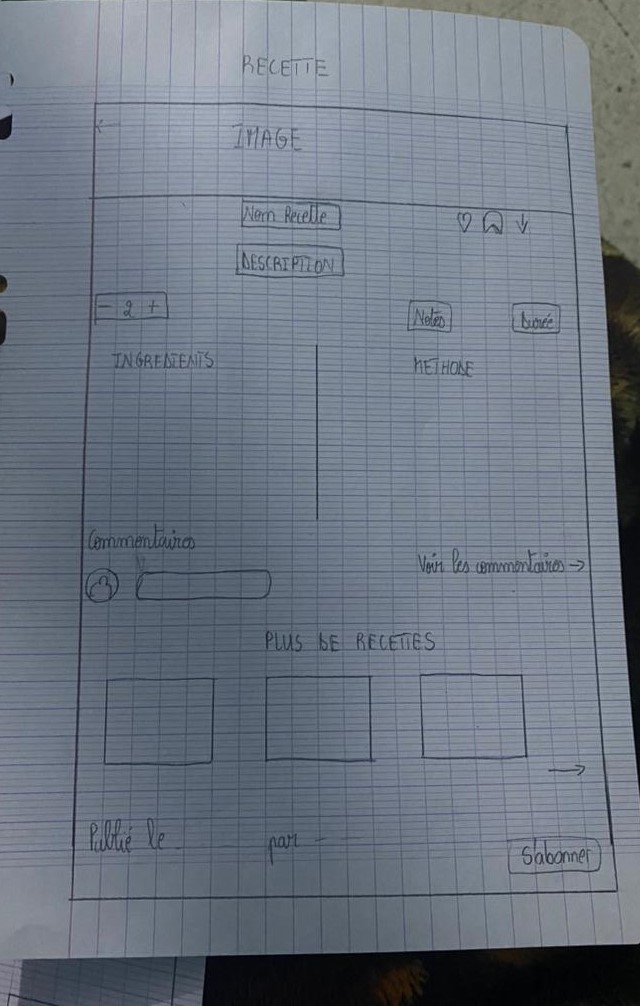 RECETTE
←
IMAGE
Nom Recette
DESCRIPTION
- 2 +
Notes Durée
INGREDIENTS
METHODE
Commentaires
Voir les commentaires →
PLUS DE RECETTES
→
Publié le par
S'abonner